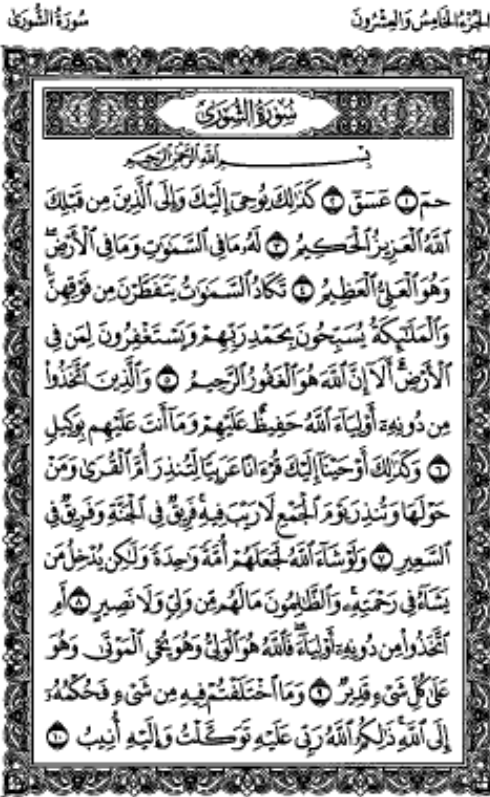 سُورَةُ الشُّورَىٰ
الجُزْءُ الخَامِسُ وَالعِشْرُونَ
سُورَةُ الشُّورَىٰ
بِسْمِ ٱللَّهِ ٱلرَّحْمَٰنِ ٱلرَّحِيمِ
حمٓ ١ عٓسٓقٓ ٢ كَذَٰلِكَ يُوحِىٓ إِلَيْكَ وَإِلَى ٱلَّذِينَ مِن قَبْلِكَ
ٱللَّهُ ٱلْعَزِيزُ ٱلْحَكِيمُ ٣ لَهُۥ مَا فِى ٱلسَّمَٰوَٰتِ وَمَا فِى ٱلْأَرْضِ ۖ
وَهُوَ ٱلْعَلِىُّ ٱلْعَظِيمُ ٤ تَكَادُ ٱلسَّمَٰوَٰتُ يَتَفَطَّرْنَ مِن فَوْقِهِنَّ ۚ
وَٱلْمَلَٰٓئِكَةُ يُسَبِّحُونَ بِحَمْدِ رَبِّهِمْ وَيَسْتَغْفِرُونَ لِمَن فِى
ٱلْأَرْضِ ۗ أَلَآ إِنَّ ٱللَّهَ هُوَ ٱلْغَفُورُ ٱلرَّحِيمُ ٥ وَٱلَّذِينَ ٱتَّخَذُوا۟
مِن دُونِهِۦٓ أَوْلِيَآءَ ٱللَّهُ حَفِيظٌ عَلَيْهِمْ وَمَآ أَنتَ عَلَيْهِم بِوَكِيلٍ
٦ وَكَذَٰلِكَ أَوْحَيْنَآ إِلَيْكَ قُرْءَانًا عَرَبِيًّا لِّتُنذِرَ أُمَّ ٱلْقُرَىٰ وَمَنْ
حَوْلَهَا وَتُنذِرَ يَوْمَ ٱلْجَمْعِ لَا رَيْبَ فِيهِ ۚ فَرِيقٌ فِى ٱلْجَنَّةِ وَفَرِيقٌ فِى
ٱلسَّعِيرِ ٧ وَلَوْ شَآءَ ٱللَّهُ لَجَعَلَهُمْ أُمَّةً وَٰحِدَةً وَلَٰكِن يُدْخِلُ مَن
يَشَآءُ فِى رَحْمَتِهِۦ ۚ وَٱلظَّٰلِمُونَ مَا لَهُم مِّن وَلِىٍّ وَلَا نَصِيرٍ ٨ أَمِ
ٱتَّخَذُوا۟ مِن دُونِهِۦٓ أَوْلِيَآءَ ۖ فَٱللَّهُ هُوَ ٱلْوَلِىُّ وَهُوَ يُحْىِ ٱلْمَوْتَىٰ وَهُوَ
عَلَىٰ كُلِّ شَىْءٍ قَدِيرٌ ٩ وَمَا ٱخْتَلَفْتُمْ فِيهِ مِن شَىْءٍ فَحُكْمُهُۥٓ
إِلَى ٱللَّهِ ۚ ذَٰلِكُمُ ٱللَّهُ رَبِّى عَلَيْهِ تَوَكَّلْتُ وَإِلَيْهِ أُنِيبُ ١٠